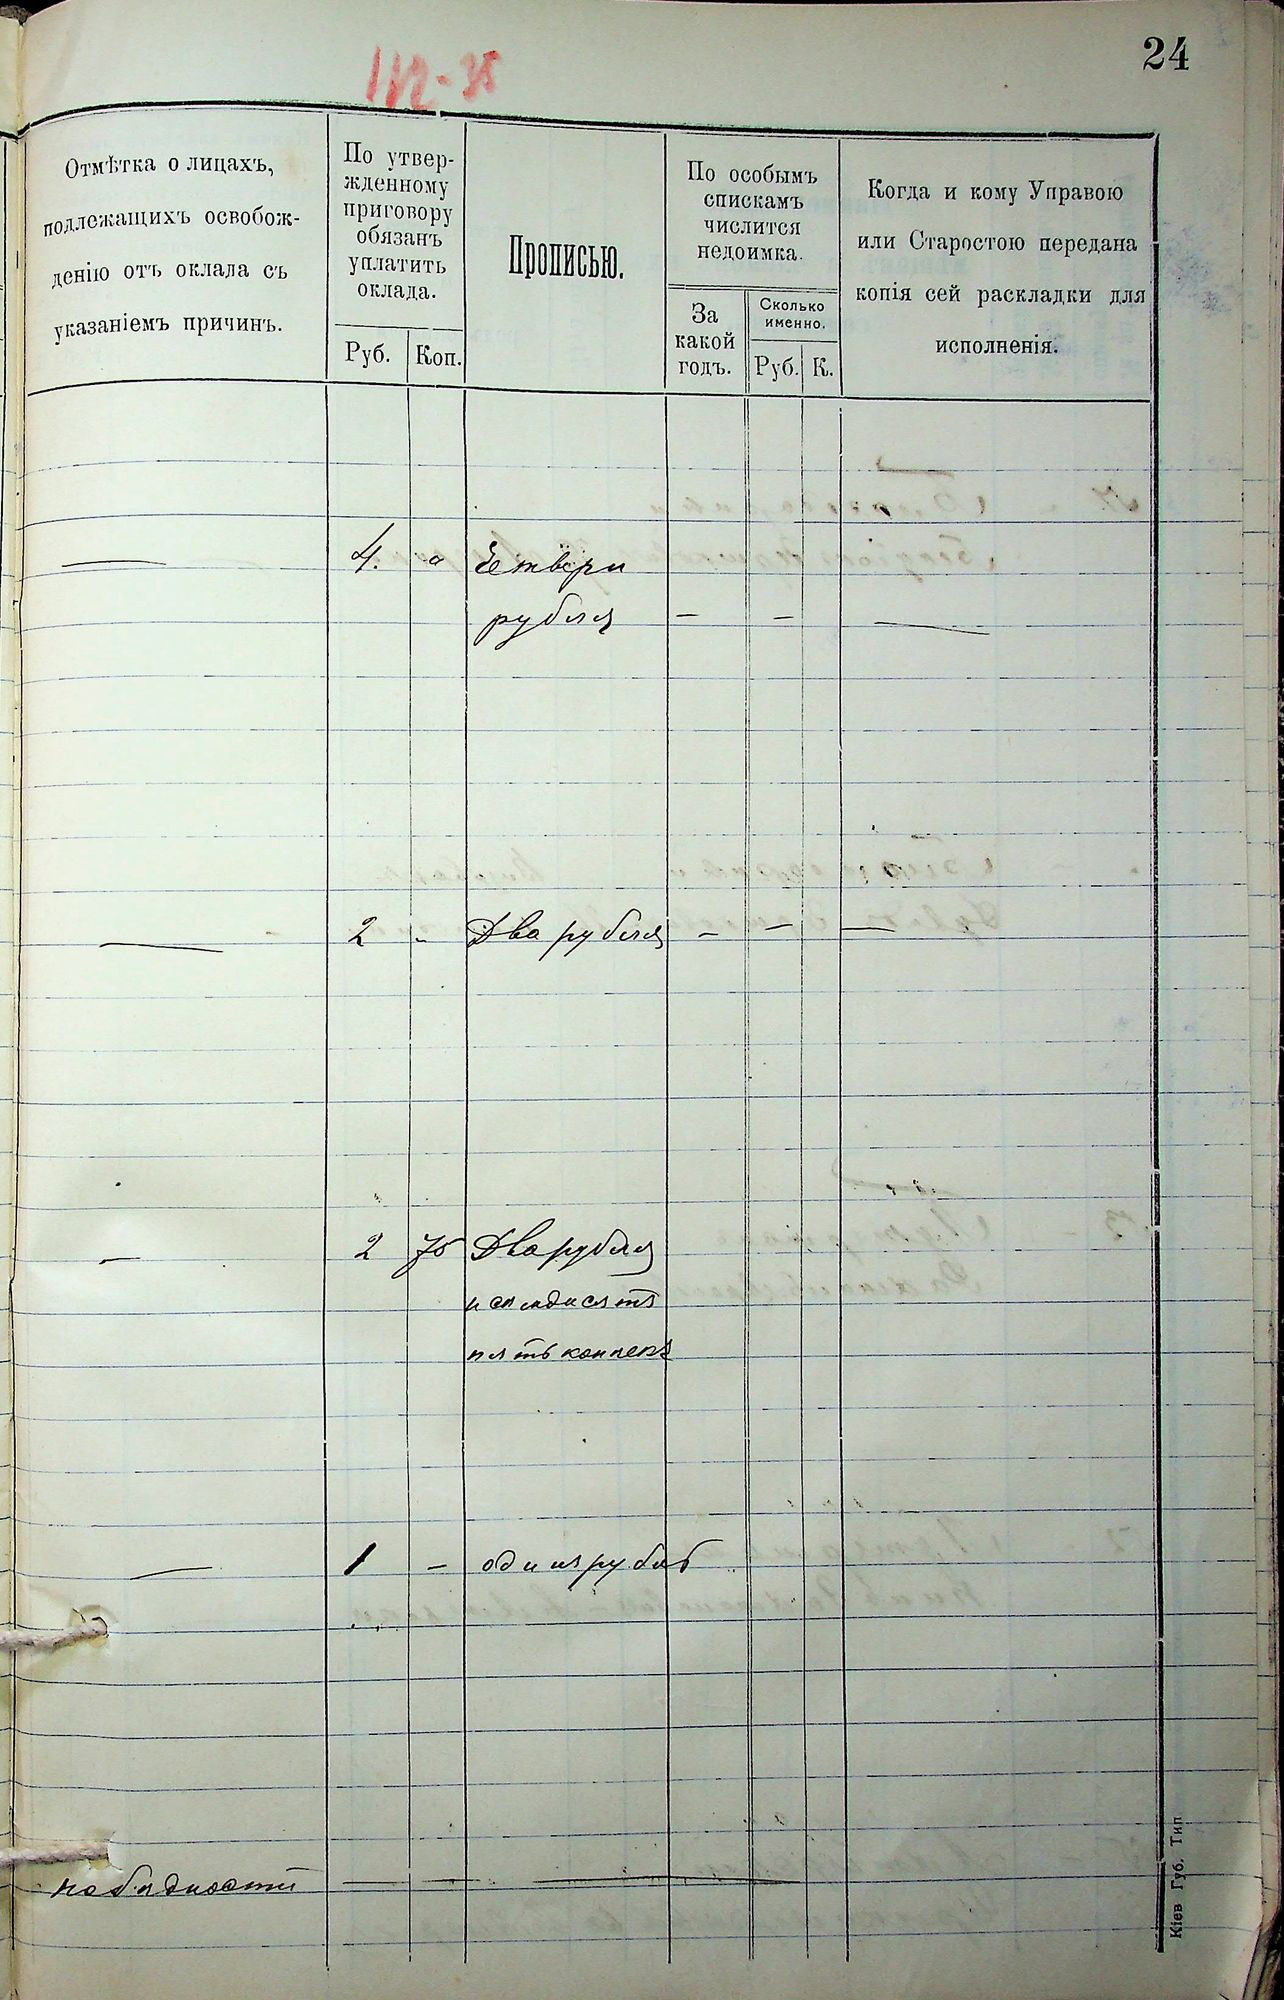 24
Отмѣтка о лицахъ,
подлежащихъ освобож-
денію отъ оклада съ
указаніемъ причинъ.
По утвер-
жденному
приговору
обязанъ
уплатить
оклада.
Руб. Коп.
Прописью.
По особымъ
спискамъ
числится
недоимка.
За
какой
годъ.
Сколько
именно.
Руб. К.
Когда и кому Управою
или Старостою передана
копія сей раскладки для
исполненія.
— 4. " Четыри
рубля — — —
— 2 " Два рубля — — —
— 2 75 Два рубля
и семдисятъ
пять коппекъ
— 1 – одинъ рубль
по бѣдности —
Кіев Губ. Тип